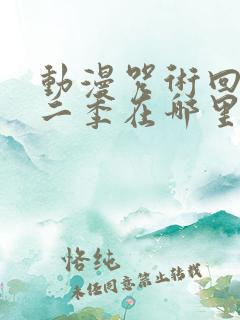 動漫咒術回
二季在哪里
恪纯
未经同意禁止转载